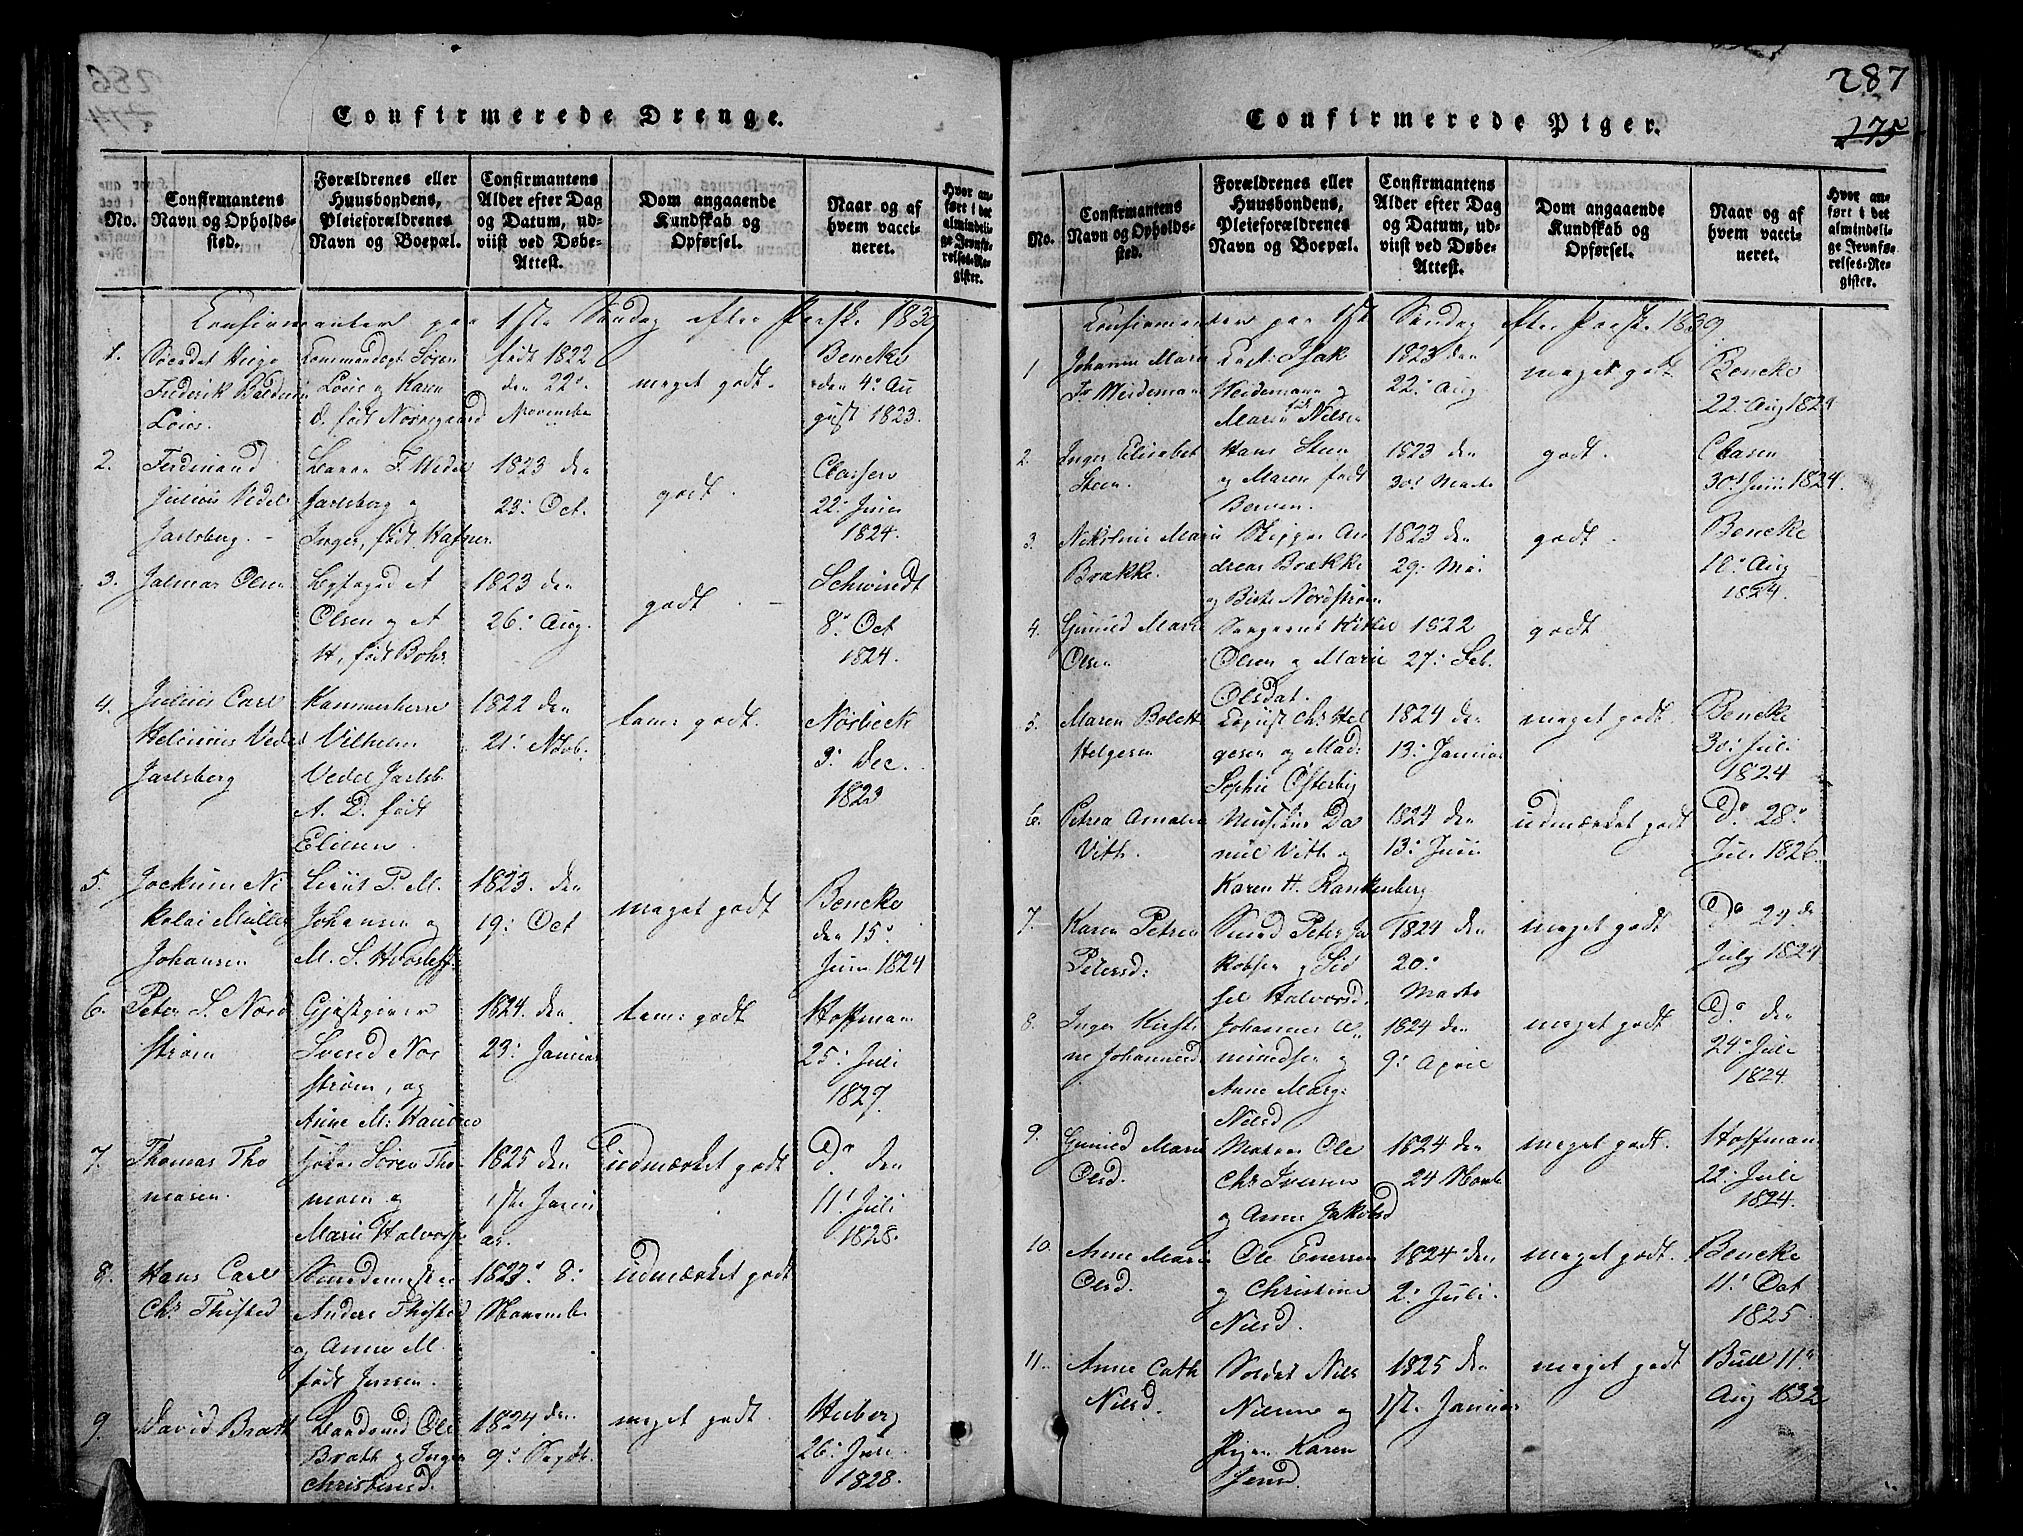 Confirmerede Drenge.
No.
Confirmantens
Navn og Opholds-
sted.
Forældrenes eller
Huusbondens,
Pleieforældrenes
Navn og Boepæl.
Confirmantens
Alder efter Dag
og Datum, ud-
viist ved Døbe-
Attest.
Dom angaaende
Kundskab og
Opførsel.
Naar og af
hvem vacci-
neret.
Hvor an-
ført i det
almindeli-
ge Jevnfø-
relses-Re-
gister.
Confirmanter paa 1ste Søndag efter Paaske 1839
1.
Frederik
født 1822
den 22de
November
meget godt.
Bencke
den 4de Au
gust 1823.
2. Ferdinand
Julius Vedel
Jarlsberg. -
Baron F. Wedel
Jarlsberg og
Inger, født Hafner
1823 den
23: Oct.
godt.
Classen
22: Juni
1824.
3. Jalmar Olsen
Olsen og A
H, født Bohr
1823 den
26: Aug.
godt. -
Schwindt
8: Oct
1824.
4. Julius Carl
Vedel
Jarlsberg
Kammerherre
Vilhelm
Vedel Jarlsb
A. D. født
Eliesen.
1822 den
21: Novb.
tem: godt.
Norbeck
3: Dec.
1823
5. Jockum Ni
kolai Müller
Johansen
Lieut P. M.
Johansen og
M. S.
1823. den
19: Oct
meget godt
Bencke
den 15de
Juni 1824
6. Peter S. Nord
strøm
Gjæstgiver
Svend Nor
strøm, og
Anne M:
1824. den
23: Januar
tem: godt
Hoffman
25: Juli
1827.
7. Thomas Tho
masen.
Søren Tho
masen og
Marie Halvors
1825 den
1ste Janu
ar.
udmærket godt
Do den
11: Juli
1828.
8. Hans Carl
Chr Thisted
Smedemester
Anders Thisted
og Anne M.
født Jensen.
1823. 8:
November
udmærket godt
9. David Brath
Ole
Brath og Inger
Christensd.
1824. den
9: Septb.
meget godt.
Huberg
26: Juni
1828.
287
275
Confirmerede Piger.
No.
Confirmantens
Navn og Opholds-
sted.
Forældrenes eller
Huusbondens,
Pleieforældrenes
Navn og Boepæl.
Confirmantens
Alder efter Dag
og Datum, ud-
viist ved Døbe-
Attest.
Dom angaaende
Kundskab og
Opførsel.
Naar og af
hvem vacci-
neret.
Hvor an-
ført i det
almindelig-
ge Jevnfø-
relses-Re-
gister.
Confirmanter paa 1ste Søndag efter Paaske 1839
1 Johanne Marie
Weideman
Isak
Weidemann og
Maren født Nilsen
1823 den
22: Aug
meget godt
Bencke
22: Aug 1824
2. Inger Elisabet
Steen
Hans Steen
og Maren født
Berven.
1823 den
30: Marts
godt.
Clasen
30: Juni 1824.
3. Nikoline Marie
Brække.
Skipper An
dreas Brække
og Birte Nordstrøm
1823 den
29: Mai
godt
Bencke
10: Aug
1824.
4. Gunild Marie
Olsen
Sergeant Kittil
Olsen og Marie
Olsdat.
1822
27: Feb.
godt
5. Maren Bolett
Helgesen
Chr Hel
gesen og Mad:
Sophie Østerby
1824 den
13: Januar
meget godt.
Bencke
30: Juli
1824
6. Petrea Amalia
Vith.
Musikus Da
niel Vith og
Karen H. Rankenberg
1824 den
13: Juni
udmærket godt
Do 28de
Juli 1826.
7. Karen Petrea
Petersd:
Smed Peter Ja
kobsen og Sid
sel Halvorsd.
1824 den
20:
Marts
meget godt
Do 24 de
July 1824
8. Inger Kirsti
ne Johannesd
Johannes A
mundsen og
Anne Marg:
Nilsd
1824 den
9: April
meget godt
Do den
24de Juli
1824.
9. Gunild Marie
Olsd.
Matros Ole
Chr Iversen
og Anne Jakobsd
1824 den
24 Marts
meget godt.
Hoffman
22: Juli
1824.
10. Anne Marie
Olsd.
Ole Enersen
og Christine
Nilsd.
1824 den
2: Juli.
meget godt.
Bencke
11: Oct
1825.
11. Anne Cath
Nilsd.
Soldat Nils
Nilsen og
Pigen Karen
Jensd.
1825 den
1ste Januar
meget godt
Bull 11:
Aug 1832